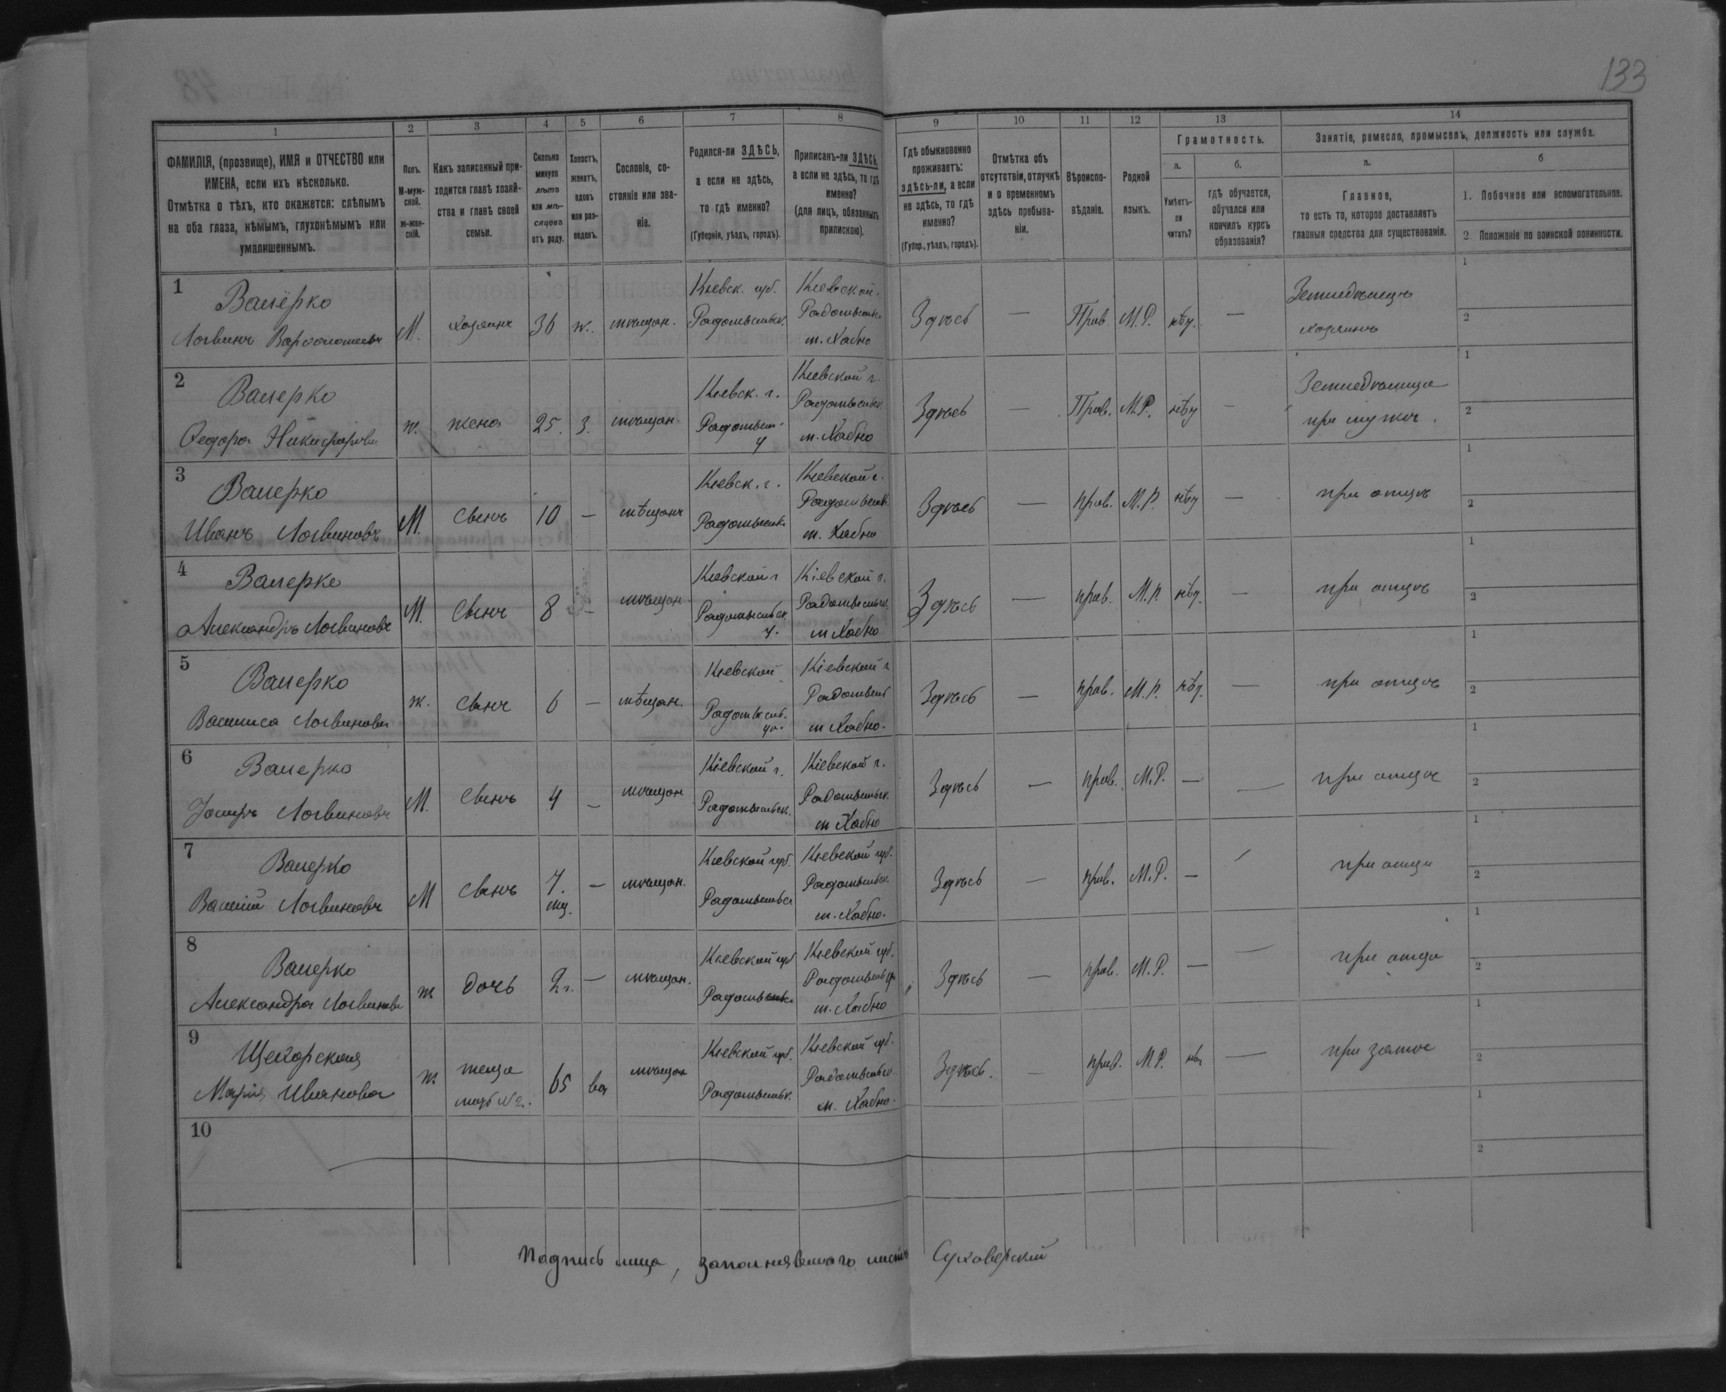 133
1 2 3 4 5 6 7 8 9 10 11 12 13 14
ФАМИЛІЯ, (прозвище), ИМЯ и ОТЧЕСТВО или
ИМЕНА, если ихъ нѣсколько.
Отмѣтка о тѣхъ, кто окажется: слѣпымъ
на оба глаза, нѣмымъ, глухонѣмымъ или
умалишеннымъ.
Полъ.
М-муж-
ской.
Ж-жен-
скій.
Какъ записанный при-
ходится главѣ хозяй-
ства и главѣ своей
семьи.
Сколько
минуло
лѣтъ
или мѣ-
сяцевъ
отъ роду.
Холостъ,
женатъ,
вдовъ
или раз-
веденъ.
Сословіе, со-
стояніе или зва-
ніе.
Родился-ли ЗДѢСЬ,
а если не здѣсь,
то гдѣ именно?
(Губернія, уѣздъ, городъ).
Приписанъ-ли ЗДѢСЬ,
а если не здѣсь, то гдѣ
именно?
(для лицъ, обязанныхъ
припискою).
Гдѣ обыкновенно
проживаетъ:
здѣсь-ли, а если
не здѣсь, то гдѣ
именно?
(Губер., уѣздъ, городъ).
Отмѣтка объ
отсутствіи, отлучкѣ
и о временномъ
здѣсь пребыва-
ніи.
Вѣроиспо-
вѣданіе.
Родной
языкъ.
Грамотность.
а.
Умѣетъ-
ли
читать?
б.
гдѣ обучается,
обучался или
кончилъ курсъ
образованія?
Занятіе, ремесло, промыселъ, должность или служба.
а.
Главное,
то есть то, которое доставляетъ
главныя средства для существованія.
б
1. Побочное или вспомогательное.
2. Положеніе по воинской повинности.
1
Валерко
Логвинъ Варфоломеевъ
М. хозяинъ 36 ж. мѣщан.
Кіевск. губ.
Радомысльск.
Кіевской
Радомысльск
м. Хабно
Здѣсь — Прав. М.Р. нѣт. —
Земледѣлецъ
хозяинъ
1
2
2
Валерко
Федора Никифорова
ж. жена 25. З. мѣщан.
Кіевск. г.
Радомысл.
у
Кіевской г.
Радомысльск
м. Хабно
Здѣсь — Прав. М.Р. нѣт —
Земледѣлица
при мужѣ.
1
2
3
Валерко
Иванъ Логвиновъ
М. сынъ 10 — мѣщанъ
Кіевск. г.
Радомысльск.
Кіевской г.
Радомысльск.
м. Хабно
Здѣсь — прав. М.Р. нѣт —
при отцѣ
1
2
4
Валерко
Александръ Логвиновъ
М. сынъ 8 — мѣщан.
Кіевской г
Радомысльск.
у.
Кіевской г.
Радомысльск.
м Хабно
Здѣсь — прав. М.Р. нѣт. —
при отцѣ
1
2
5
Валерко
Василиса Логвинова
ж. сынъ 6 — мѣщан.
Кіевской
Радомысл.
уѣ.
Кіевской г
Радомысл
м Хабно.
Здѣсь — прав. М.Р. нѣт. —
при отцѣ
1
2
6
Валерко
Іосифъ Логвиновъ
М. сынъ 4 — мѣщан
Кіевской г.
Радомысльск.
Кіевской г.
Радомысльск.
м Хабно
Здѣсь — прав. М.Р. — —
при отцѣ
1
2
7
Валерко
Василій Логвиновъ
М сынъ 7. — мѣщан.
мц.
Кіевской губ.
Радомысльск
Кіевской губ.
Радомысльск.
м. Хабно.
Здѣсь — прав. М.Р. — —
при отцѣ
1
2
8
Валерко
Александра Логвинова
ж дочь 2 г. — мѣщан.
Кіевской губ
Радомысльск
Кіевской губ.
Радомысльск
м. Хабно
Здѣсь — прав. М.Р. — —
при отцѣ
1
2
9
Щегорская
Марія Иванова
ж теща 65 вд мѣщан
мать №2.
Кіевской губ.
Радомысльск.
Кіевской губ.
Радомысльск.
м. Хабно.
Здѣсь. — прав. М.Р. нѣт —
при зятѣ
1
2
10
1
2
Подпись лица, заполнявшаго листъ Суховерскій